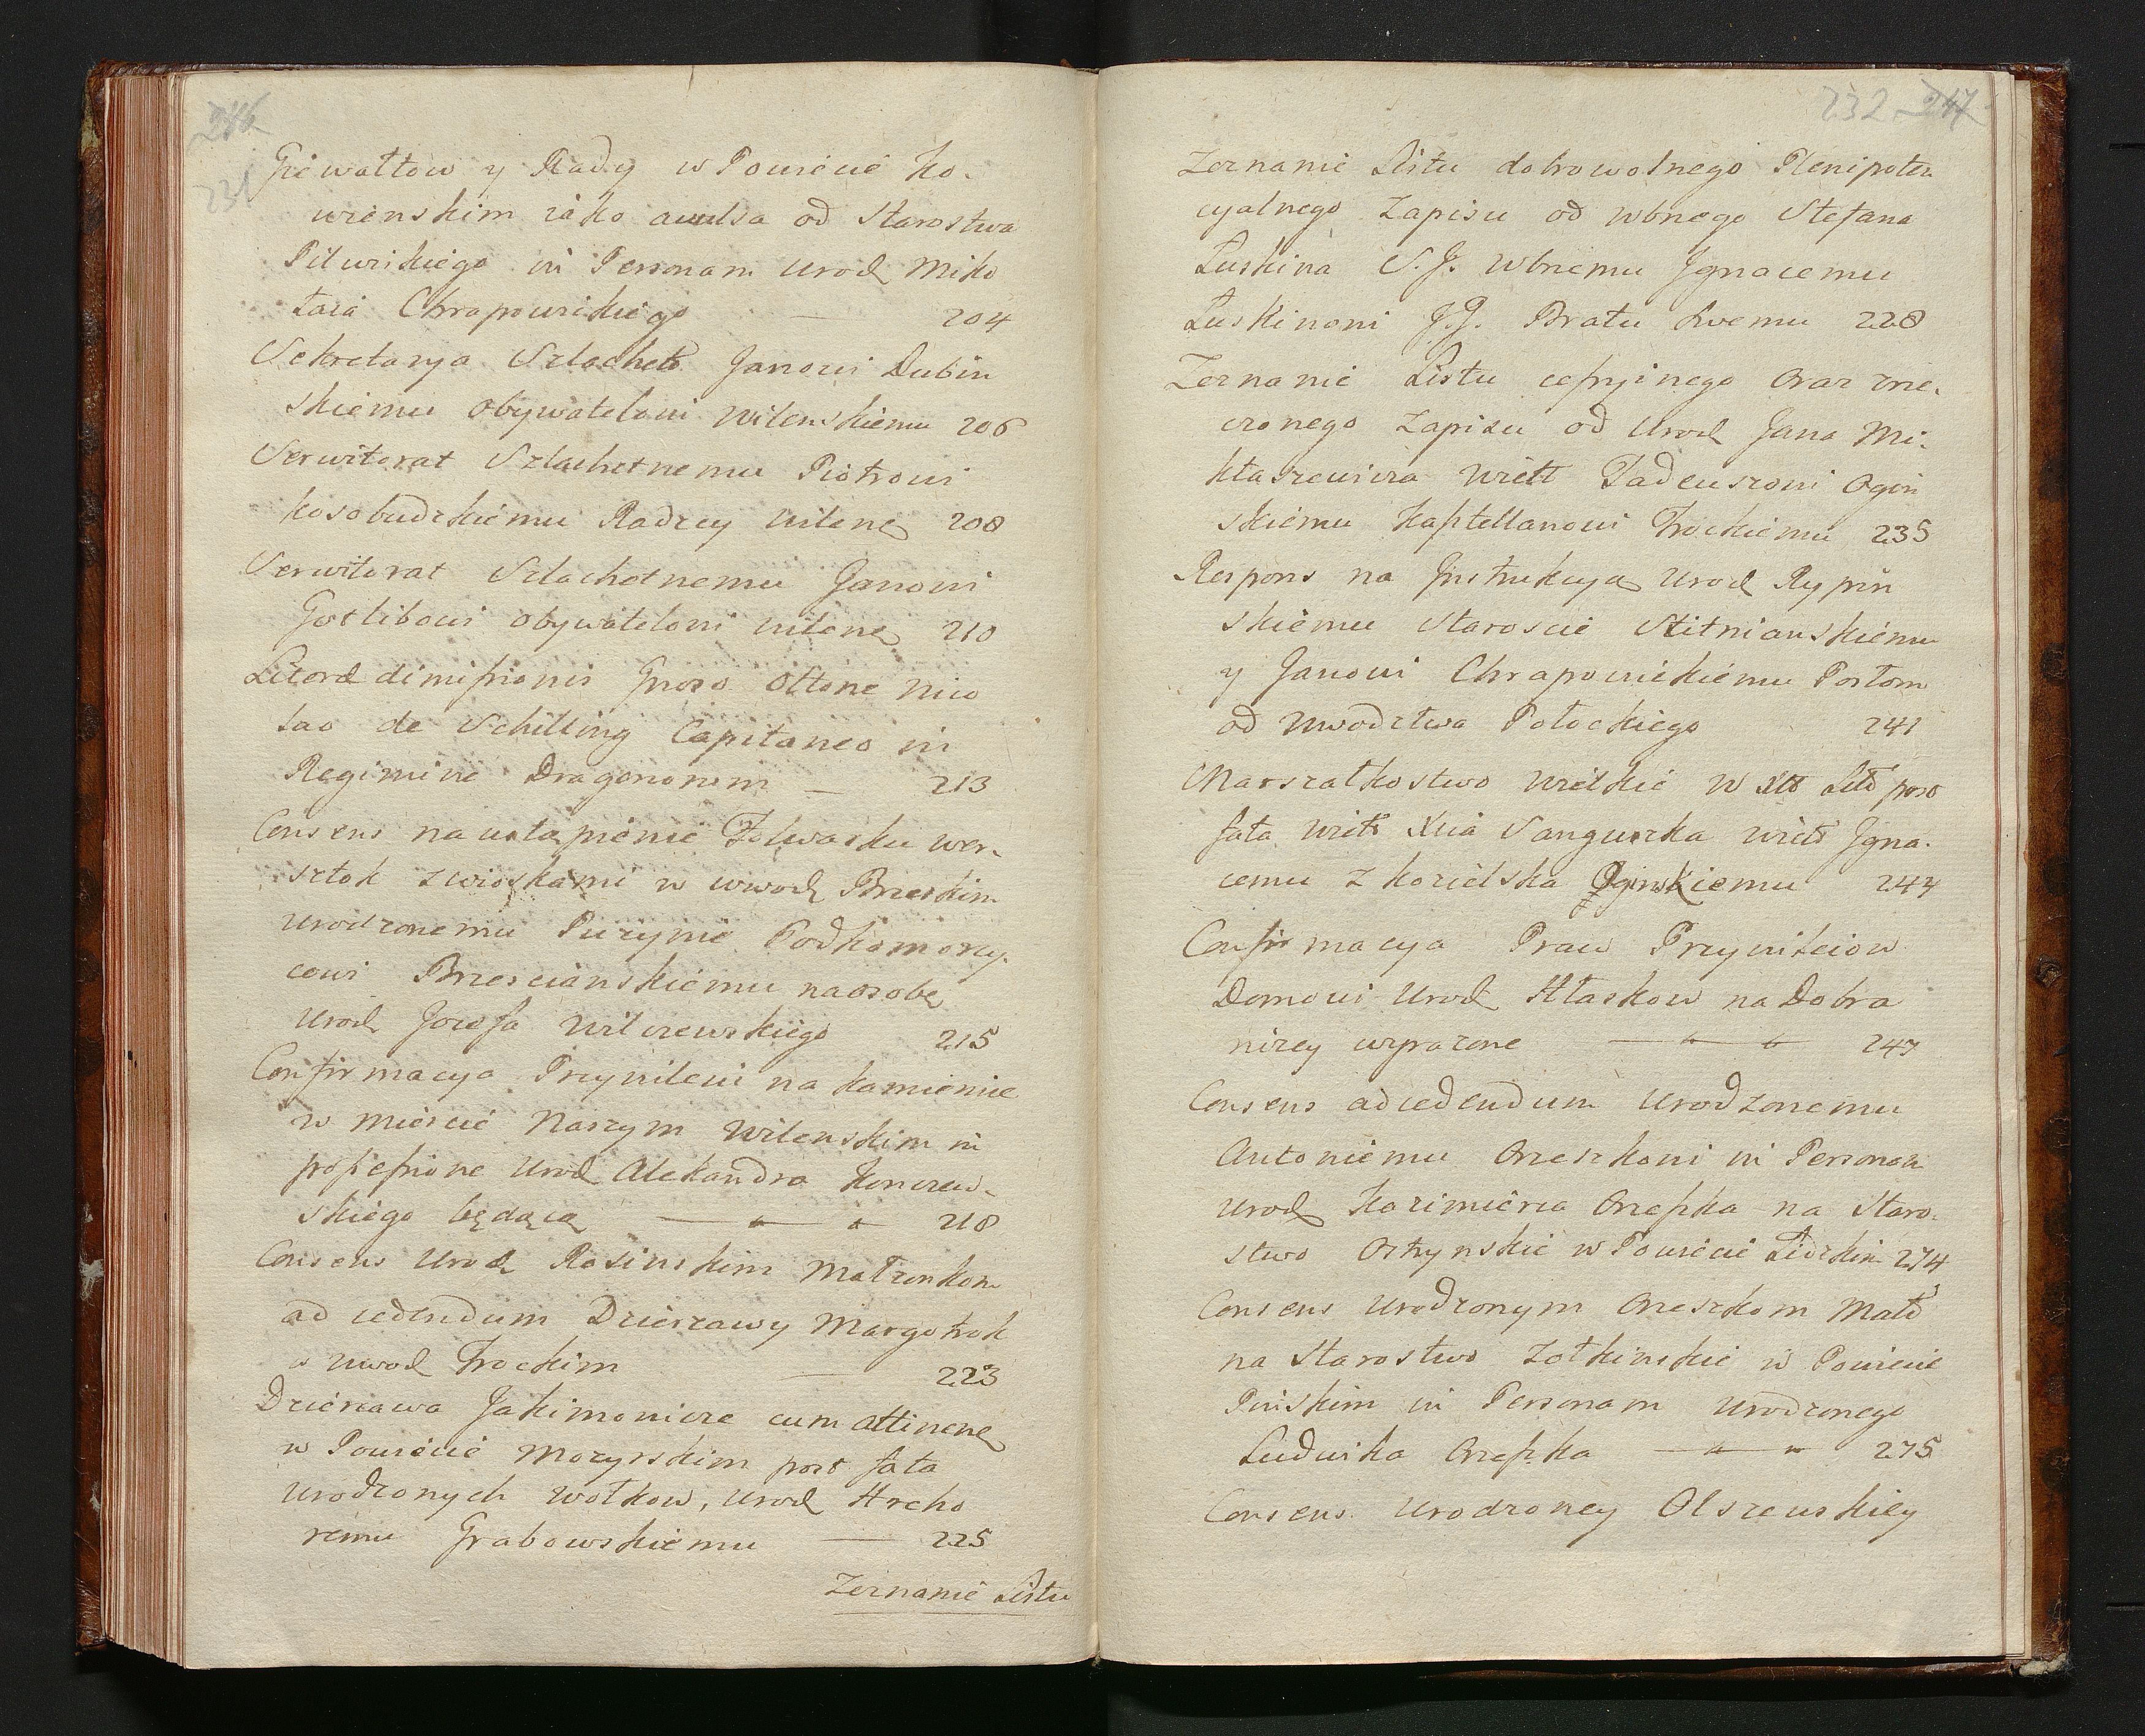 246
231
Giewałtow y Rady w Powiecie Ko-
wienskim iako avulsa od Starostwa
Pilwiskiego in Personam Urod Miko
łaia Chrapowickiego — 204
Sekretarya Szlachett Janowi Dubin
skiemu Obywatelowi Wilenskiemu 206
Serwitorat Szlachetnemu Piotrowi
Kosobudzkiemu Radzcy Wilen 208
Serwitorat Szlachetnemu Janowi
Gotlibowi Obywatelowi Wilen 210
Literæ dimissionis Gnoso Ottone Nico
lao de Schilling Capitaneo in
Regimine Dragonorum — 213
Consens na ustąpienie Folwarku Wer-
sztok z wioskami w Wwod Brzeskim
Urodzonemu Puzynie Podkomorzy-
cowi Brzescianskiemu na osobę
Urod Jozefa Wilczewskiego 215
Confirmacya Przywileiu na kamienice
w Miescie Naszym Wilenskim in
possessione Urod Alexandra Konczew-
skiego będącą — " — " 218
Consens Urod Rosinskim Małżonkom
ad cedendum Dzierzawy Margotrok
w Wwod Trockim — 223
Dzierzawa Jakimowicze cum attinen
w Powiecie Mozyrskim post fata
Urodzonych Wołkow, Urod Hreho
remu Grabowskiemu — 225
Zeznanie Listu
232 247
Zeznanie Listu dobrowolnego Plenipoten
cyalnego Zapisu od Wbnego Stefana
Łuskina S.J. Wbnemu Jgnacemu
Łuskinoni J.J. Bratu Swemu 228
Zeznanie Listu cessyinego oraz zrze-
czonego Zapisu od Urod Jana Mi-
kłaszewicza Wielt Tadeuszowi Ogin
skiemu Kasztellanowi Trockiemu 235
Respons na Jnstrukcyą Urod Rypin
skiemu Staroscie Stitnianskiemu
y Janowi Chrapowickiemu Posłom
od Wwodztwa Połockiego 241
Marszałkostwo Wielkie W XLtt Litt post
fata Wielt Xcia Sanguszka Wielt Jgna-
cemu z Kozielska Oginskiemu 244
Confirmacya Praw Przywileiow
Domowi Urod Hłaskow na Dobra
nizey wyrazone — " — " — 247
Consens ad cedendum Urodzonemu
Antoniemu Orzeszkowi in Personam
Urod Kazimierza Orzeszka na Staro-
stwo Ostrynskie w Powiecie Lidzkim 274
Consens Urodzonym Orzeszkom Małż
na Starostwo Żołkinskie w Powiecie
Pinskim in Personam Urodzonego
Ludwika Orzeszka — " — " 275
Consens Urodzoney Olszewskiey